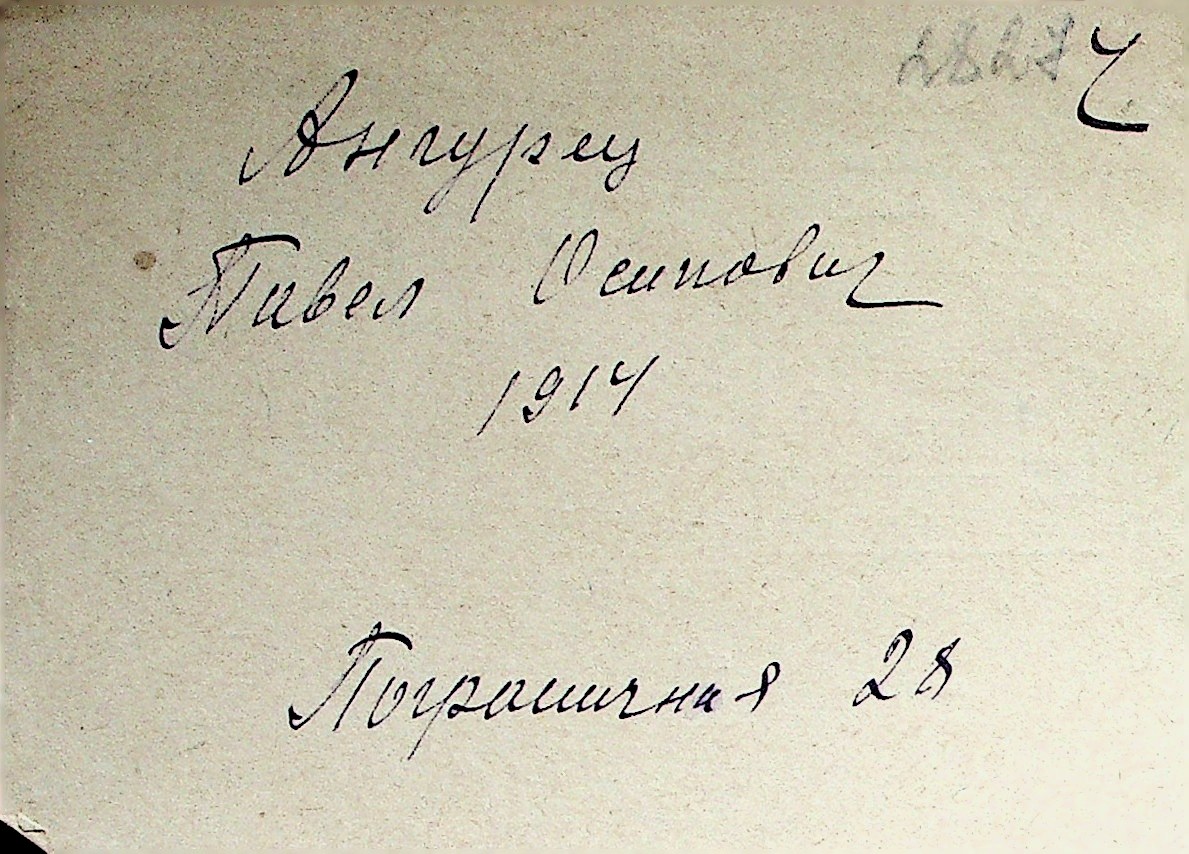 2827 Ч
Ангурец
Павел Осипович
1914
Пограничная 28